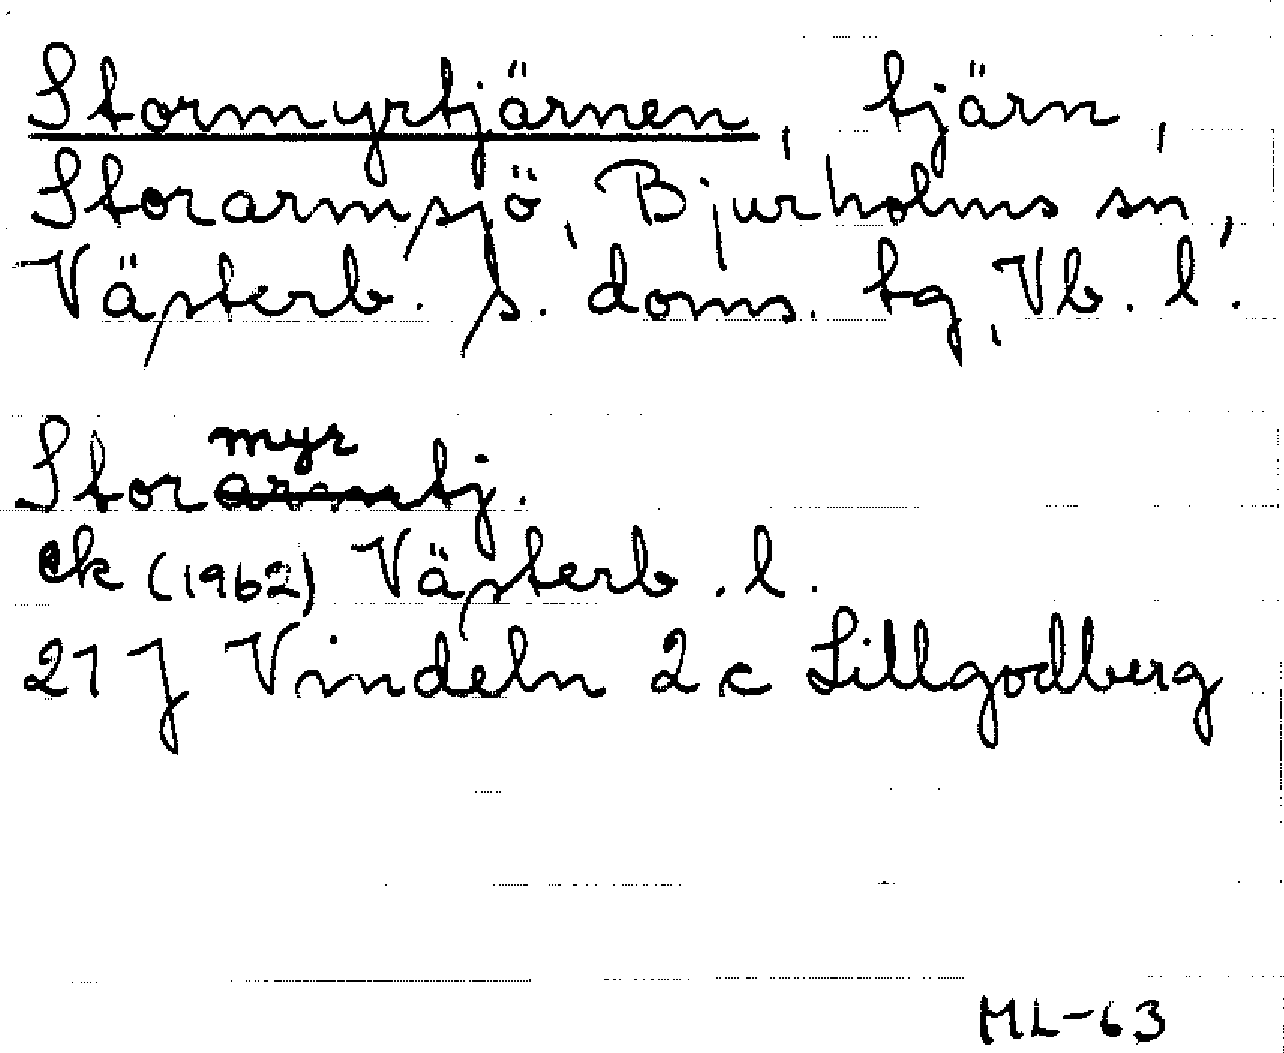 Stormyrtjärnen, tjärn,
Storarmsjö, Bjurholms sn,
Västerb. s. doms. tg, Vb. l.
myr
Storarmtj.
ek (1962) Västerb. l.
21 J Vindeln 2 c Lillgodberg
ML-63